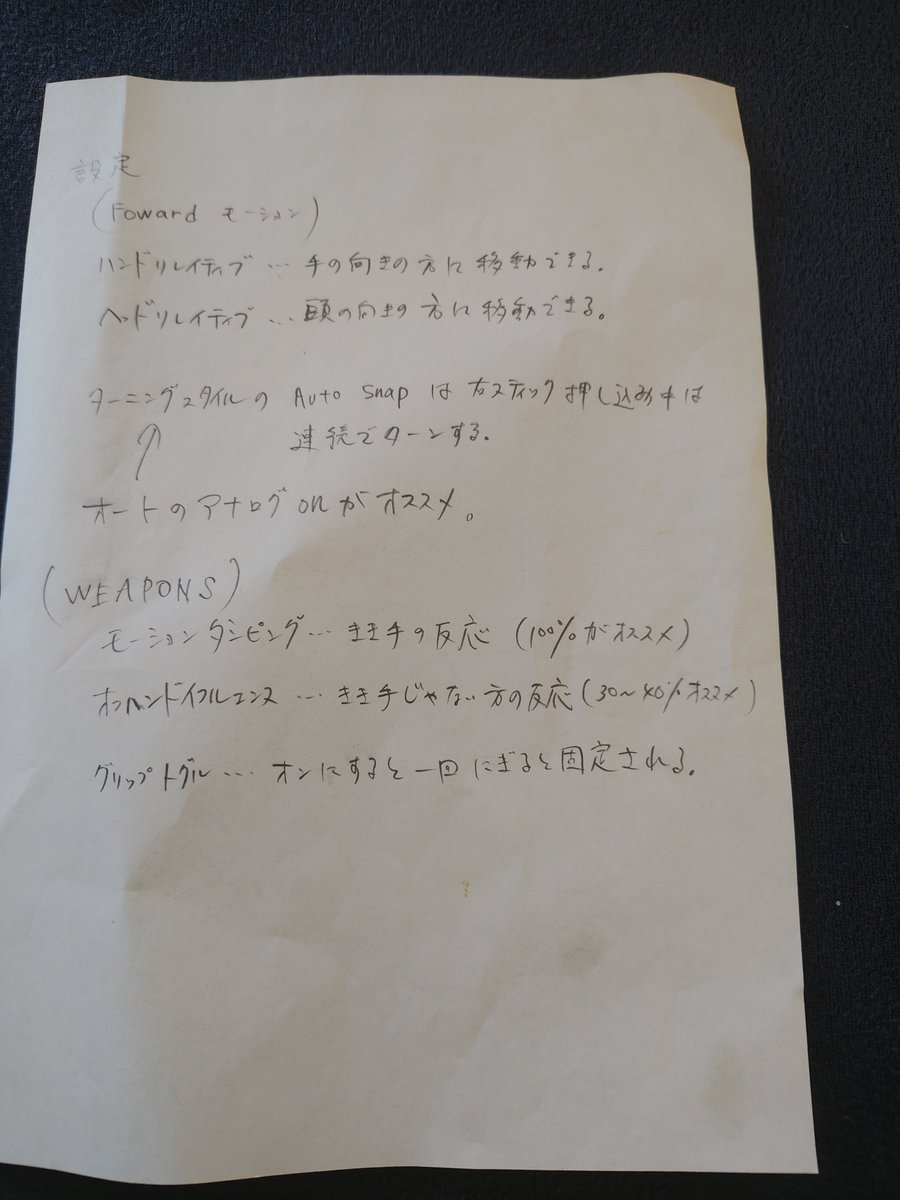 設定
(Foward モーション)
ハンドリレイティブ … 手の向きの方に移動できる。
ヘッドリレイティブ … 頭の向きの方に移動できる。
ターニングスタイルの Auto Snap は 右スティック押し込み中は
連続でターンする。
オートのアナログonがオススメ。
(WEAPONS)
モーションダンピング … きき手の反応 (100%がオススメ)
オフハンドイフルエンス … きき手じゃない方の反応 (30~40%オススメ)
グリップトグル … オンにすると一回にぎると固定される。